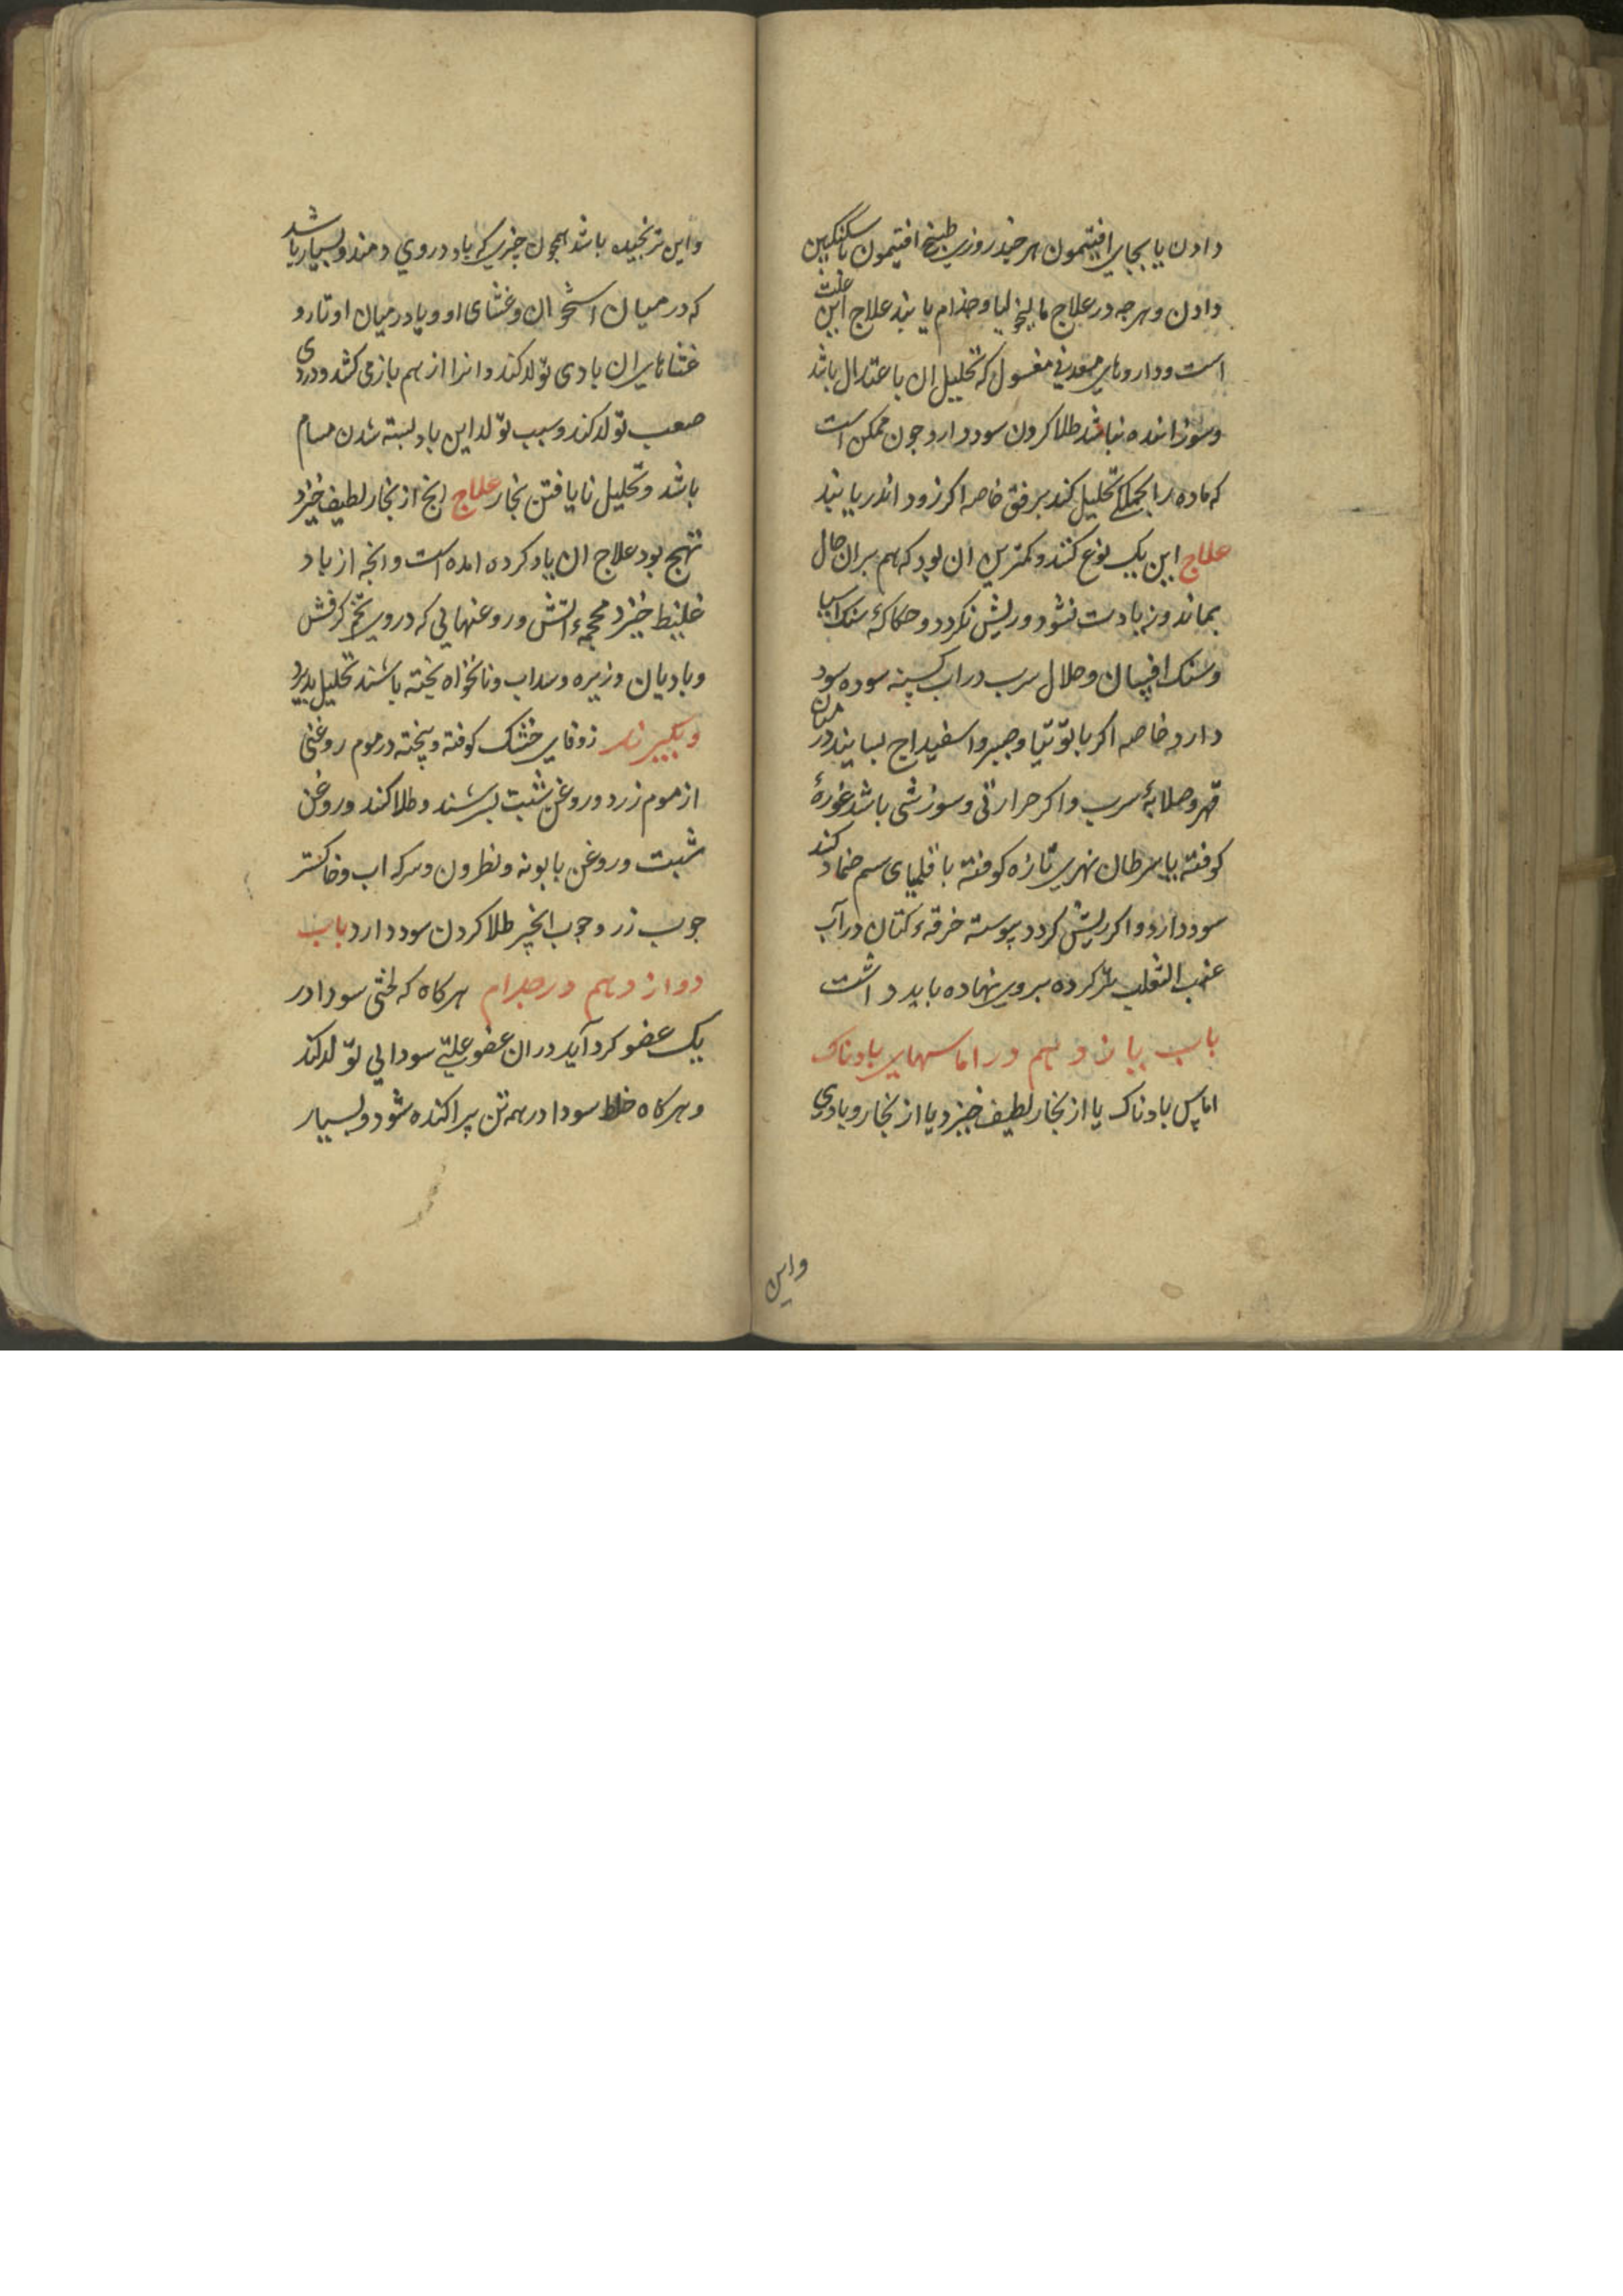 دادن یا بجای افتیمون هر چند روزی طبیخ افتیمون با سکنکبین
دادن و هرجه در علاج مالیخولیا و جذام یابند علاج این علت
است و داروهای معدنی مغسول که تحلیل ان باعتدال باشد
وسوزاننده نباشد طلا کردن سود دارد جون ممکن است
که ماده را بجملکی تحلیل کند برفق خاصه اکر زود اندر یابند
علاج این یک نوع کنند و کمترین ان بود که هم بران حال
بماند و زیادت نشود و ریش نکردد و حکاکهٔ سنک اسیا
وسنک افسان و حلال سرب در اب کسپنه سوده سود
دارد خاصه اکر با توتیا و صبر و اسفیداج بسایند در میان
قهر و صلایهٔ سرب و اکر حرارتی و سوزشی باشد غورهٔ
کوفته یا سرطان نهری تازه کوفته با قلمیای سم ضماد کند
سود دارد و اکر ریش کردد پیوسته خرقهٔ کتان در آب
عنب الثعلب تر کرده بروی نهاده باید داشت
باب یازدهم در اماسهای بادناک
اماس بادناک یا از بخار لطیف خیزد یا از بخار و بادی
واین
واین ترنجیده باشد همچون چیزی که باد در وی دمند و بسیار باشد
که در میان استخوان و غشای او و یا در میان اوتار و
غشاهای ان بادی تولد کند و انرا از هم باز می کشد و دردی
صعب تولد کند و سبب تولد این باد بسته شدن مسام
باشد و تحلیل نایافتن بخار علاج انج از بخار لطیف خیزد
تهبج بود علاج ان یاد کرده امده است و انجه از باد
غلیظ خیزد محجمهٔ اتش و روغنهائی که در وی تخم کرفش
وبادیان و زیره و سداب و نانخواه پخته باشند تحلیل پذیرد
وبکیرند زوفای خشک کوفته و پیخته در موم روغنی
از موم زرد و روغن شبت بسرشند و طلا کند و روغن
شبت و روغن بابونه و نطرون و سرکه اب و خاکستر
جوب رز و جوب انجیر طلا کردن سود دارد باب
دوازدهم در جذام هر کاه که لختی سودا در
یک عضو کرد آید در ان عضو علتی سودایی تولد کند
و هر کاه خلط سودا در همه تن پراکنده شود و بسیار